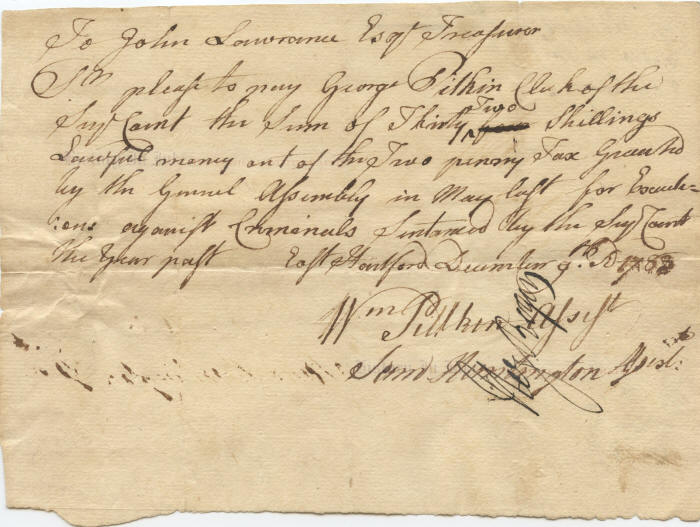 To John Lawrance Esqr Treasurer
Sr please to pay George Pitkin Clerk of the
Supr Court the Sum of Thirty Two Shillings
Lawful money out of the Two penny Tax Granted
by the General Assembly in May last for Execut-
ions against Criminals Sentanced by the Supr Court
the Year past East Hartford December 9th AD 1783
Wm Pitkin Assist
Sam Huntington Assist: